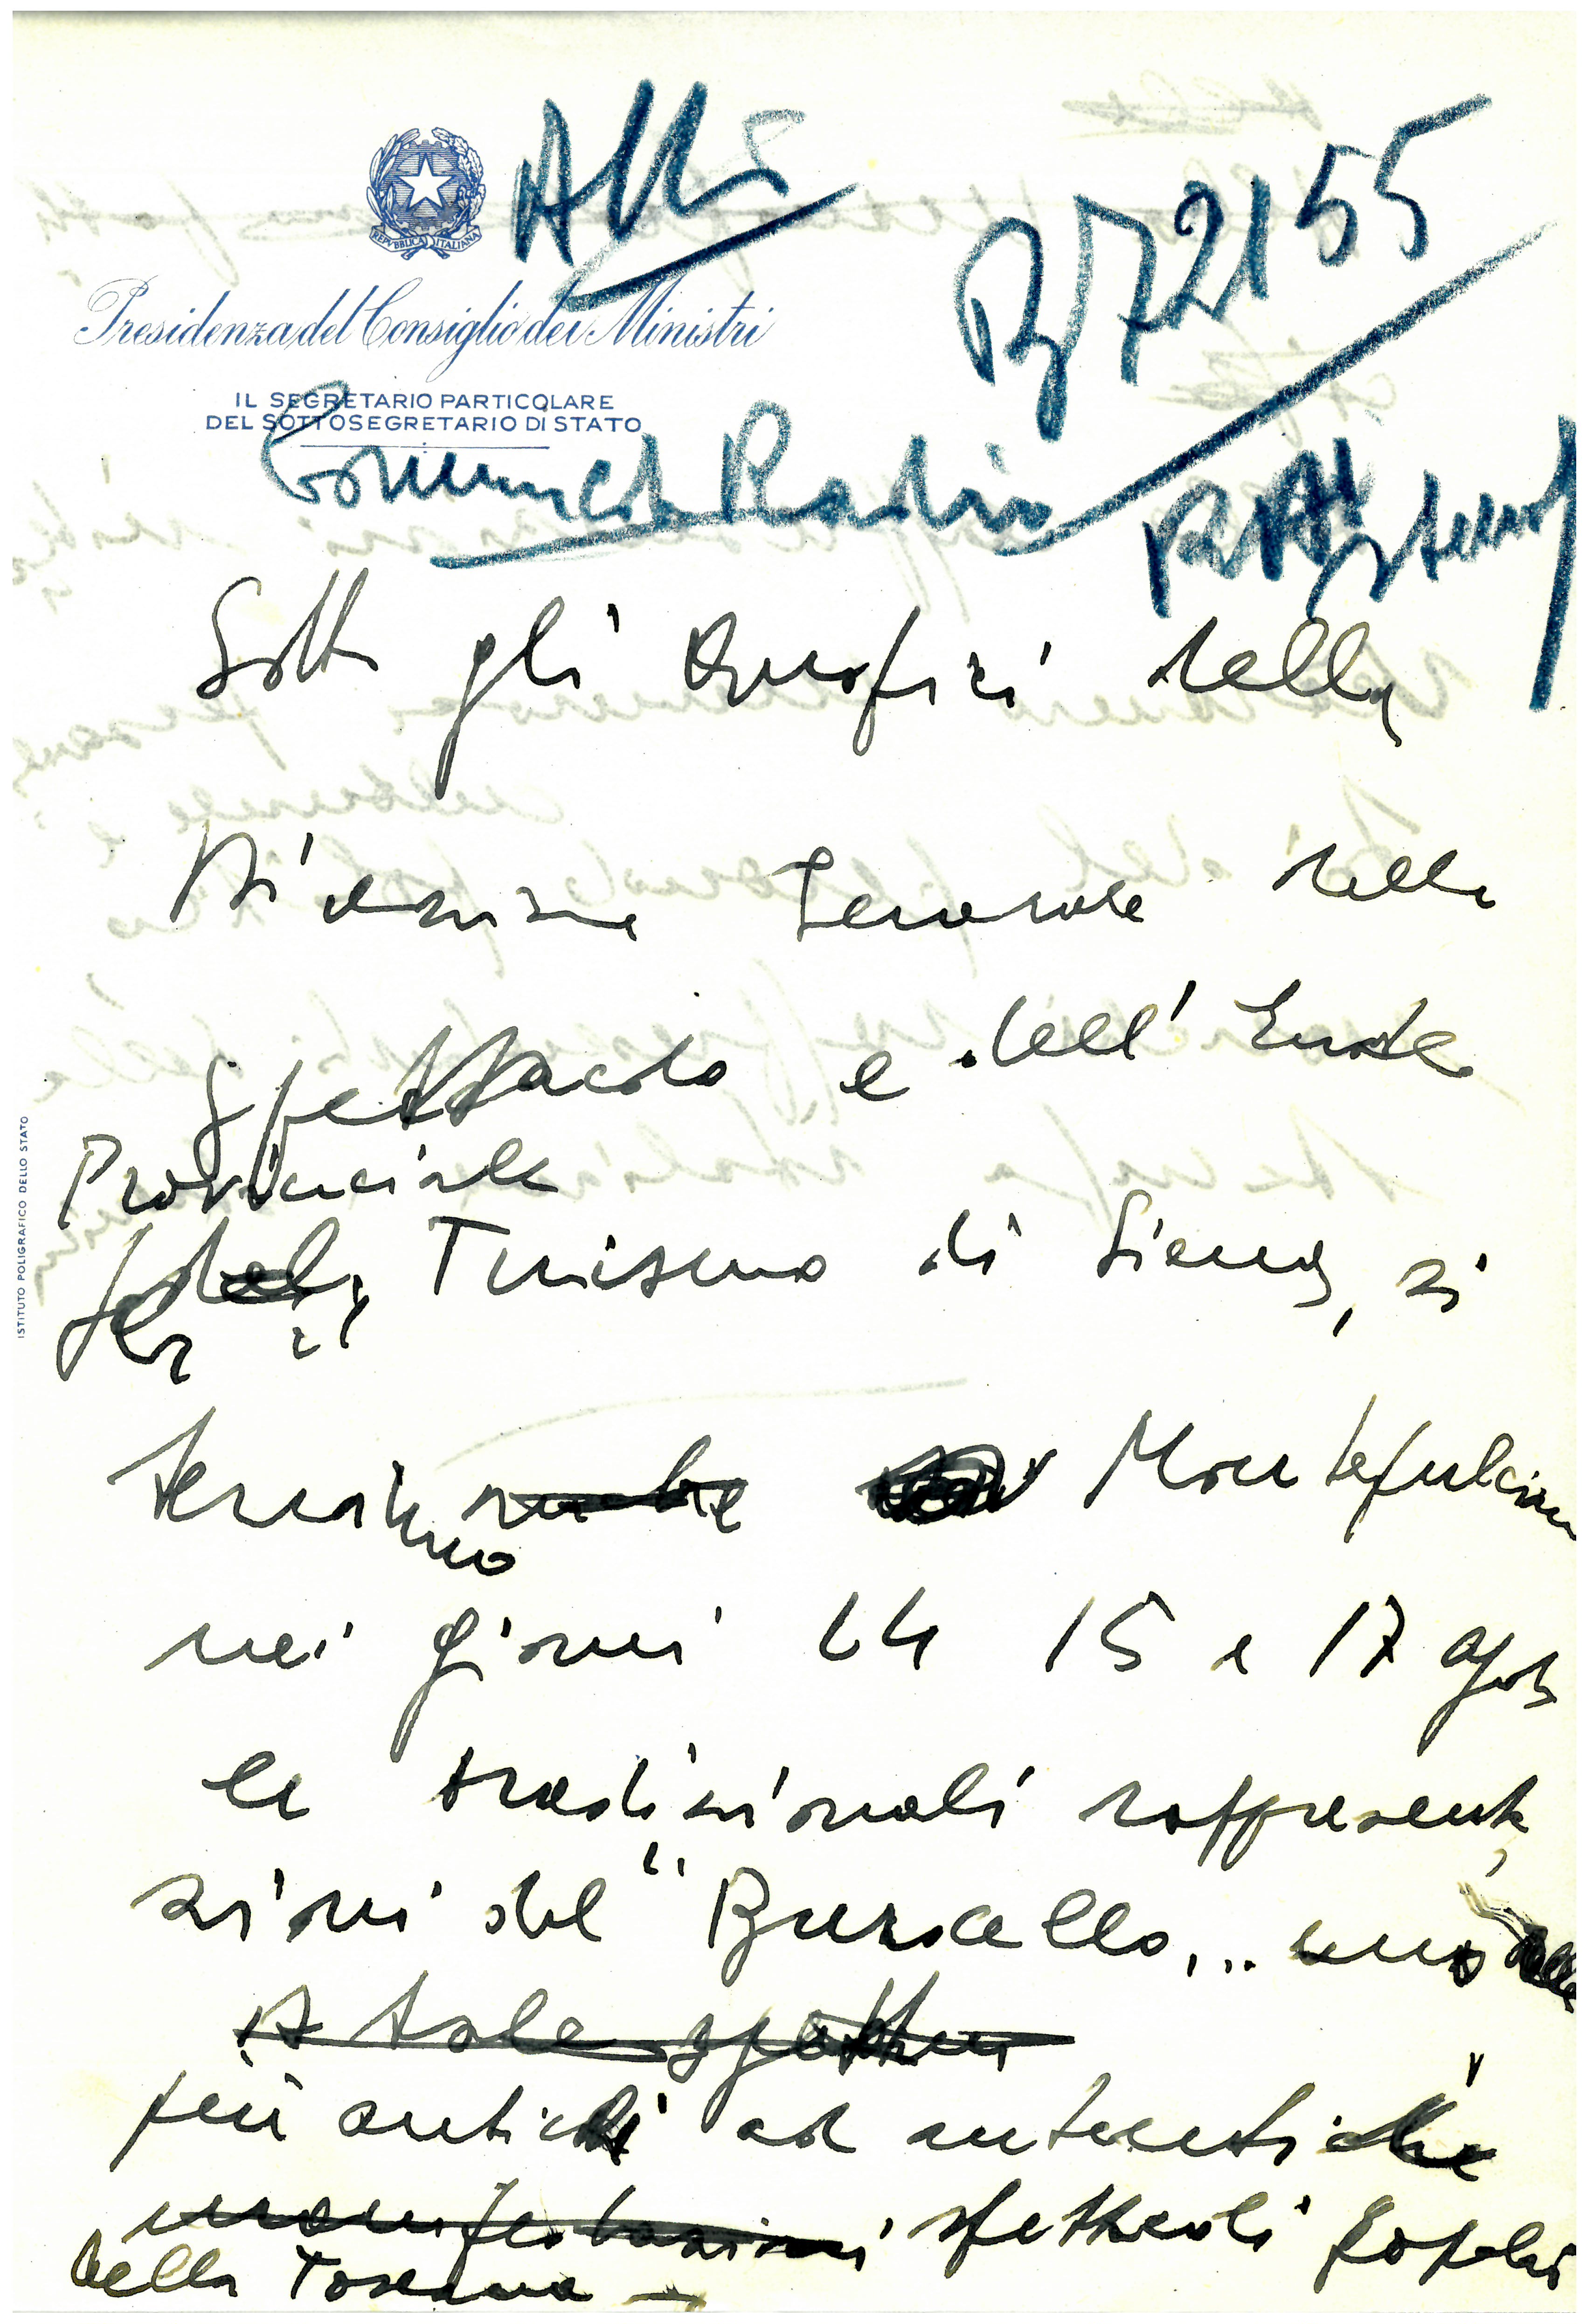 REPVBBLICA ITALIANA
Presidenza del Consiglio dei Ministri
IL SEGRETARIO PARTICOLARE
DEL SOTTOSEGRETARIO DI STATO
Atti
72155
Comunicato Radio
ISTITUTO POLIGRAFICO DELLO STATO
Sotto gli auspici della
Direzione Generale dello
Spettacolo e dell'Ente
Provinciale
per il Turismo di Siena, si
terranno Montepulciano
nei giorni 14 15 e 17 agosto
le tradizionali rappresenta
zioni del "Bruscello" uno
più antichi ed autentici
manifestazioni spettacoli popolari
della Toscana